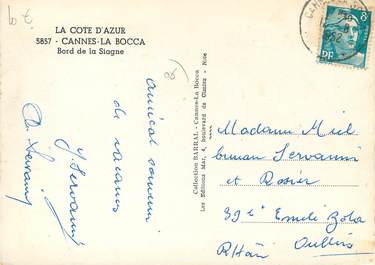 LA COTE D'AZUR
5857 - CANNES-LA BOCCA
Bord de la Siagne
amical souvenir
de vacances
J. Servanin
Collection BARRAL - Cannes-La Bocca
Les Editions Mar, 4, boulevard de Cimiez - Nice
8F
RF
Madame Miel
Servanin
et Rosier
39 Emile Zola
Rhône Oullins